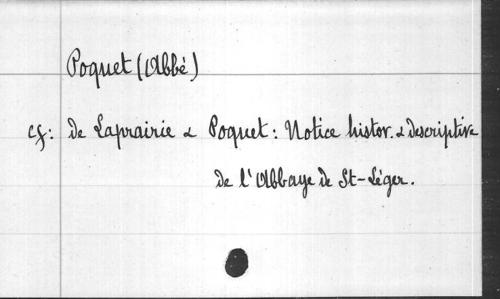 Poquet (Abbé)
cf: de Laprairie & Poquet: Notice histor. & descriptive
de l'Abbaye de St-Léger.